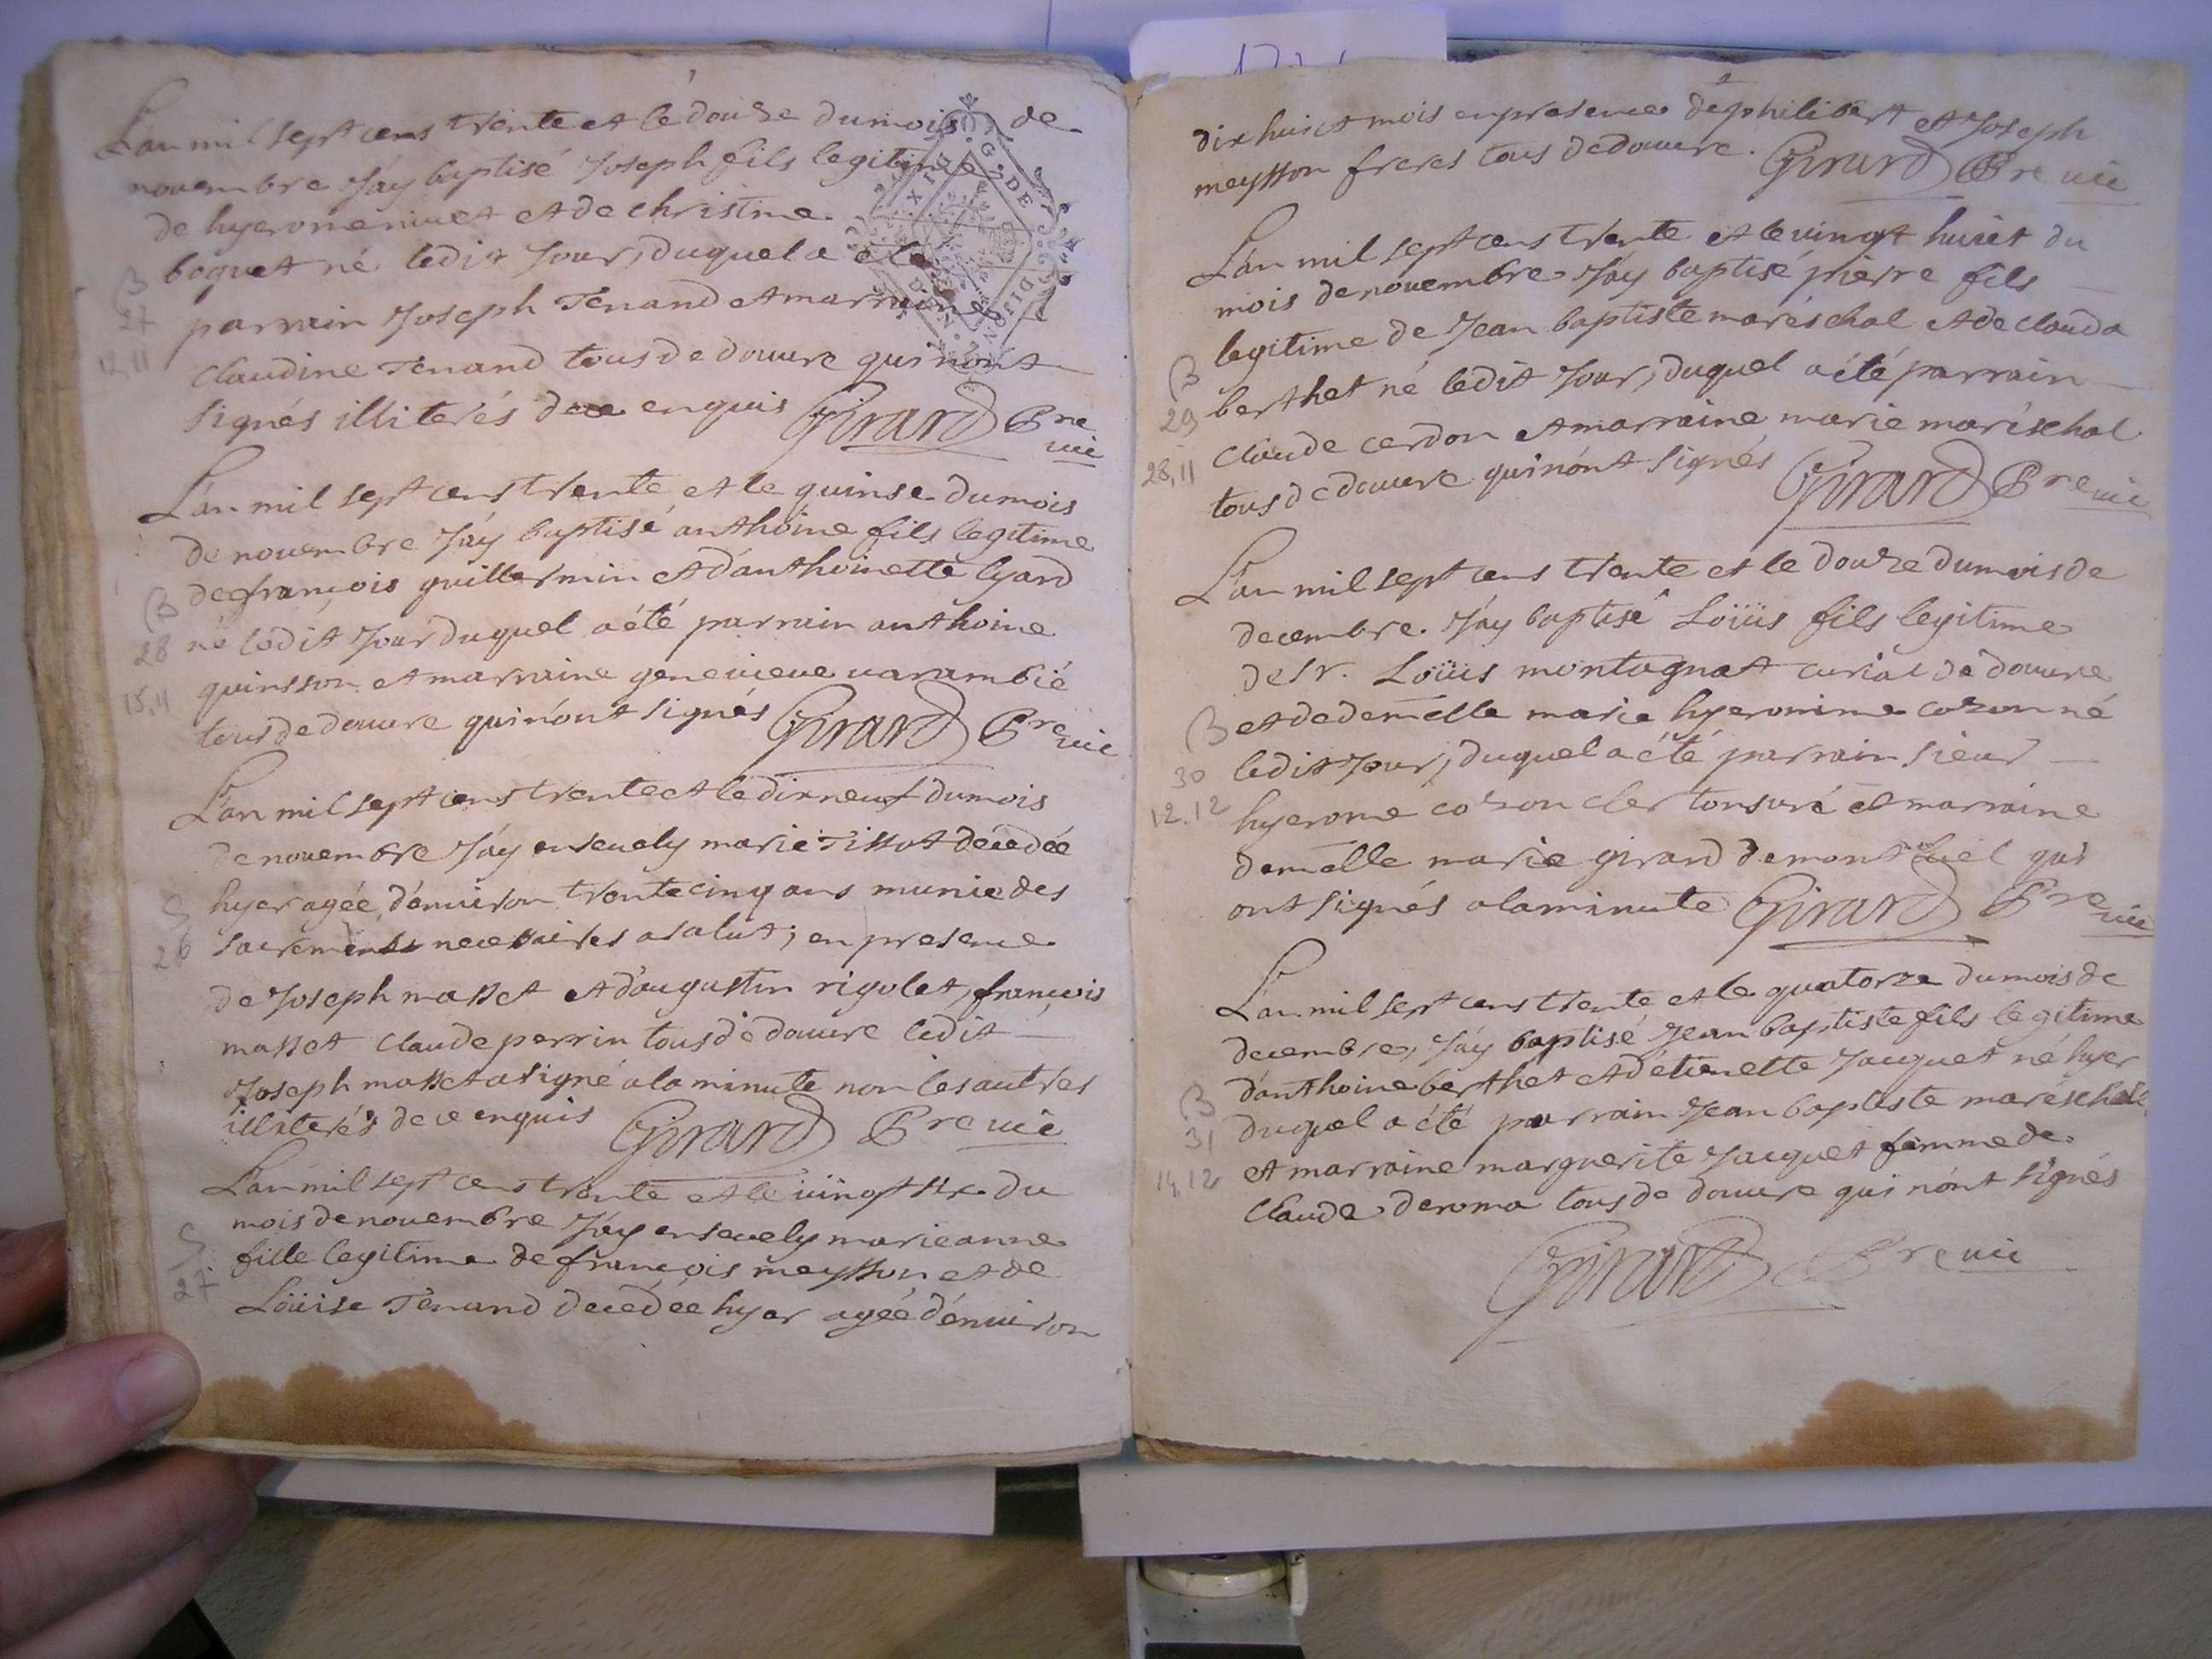 L'an mil sept cens trente et le douze du mois de
novembre J'ay baptisé Joseph fils legitime
de hyerome nivet et de christine
boquet né ledit Jour, duquel a été
B
27
12,11
parrain Joseph Tenand et marraine
Claudine Tenand tous de douvre qui n'ont
signés illiterés de ce enquis Girard Pre vic
L'an mil sept cens trente et le quinse du mois
de novembre J'ay baptisé anthoine fils legitime
de françois guillermin et d'anthoinette lyard
B
28
15,11
né ledit Jour duquel a été parrain anthoine
quinsson et marraine genevieve varambié
tous de douvre qui n'ont signés Girard Pre vic
L'an mil sept cens trente et le dix neuf du mois
de novembre J'ay ensevely marie Tissot décedée
hyer agée d'environ trente cinq ans munie des
S
26
sacrements necessaires a salut; en presence
de Joseph masset et d'augustin rigolet, françois
masset Claude perrin tous de douvre ledit
Joseph masset a signé a la minute non les autres
illiterés de ce enquis Girard Pre vic
L'an mil sept cens trente et le vingt six du
mois de novembre J'ay ensevely marie anne
S
27
fille legitime de françois meysson et de
Loüise Tenand decedée hyer agée d'environ
dix huict mois en presence de philibert et Joseph
meysson freres tous de douvre. Girard Pre vic
L'an mil sept cens trente et le vingt huict du
mois de novembre J'ay baptisé pierre fils
legitime de Jean baptiste maréschal et de clauda
B
29
28,11
berthet né ledit Jour, duquel a été parrain
Claude cerdon et marraine marie maréschal
tous de douvre qui n'ont signés Girard Pre vic
L'an mil sept cens trente et le douze du mois de
decembre. J'ay baptisé Loüis fils legitime
de Sr. Loüis montagnat curial de douvre
B
30
12.12
et de demelle marie hyeronime cozon né
ledit Jour, duquel a été parrain sieur
hyerome cozon cler tonsuré et marraine
demelle marie girard de qui
ont signés a la minute Girard Pre vic
L'an mil sept cens trente et le quatorze du mois de
decembre, J'ay baptisé Jean baptiste fils legitime
d'anthoine berthet et d'étienette Jacquet né hyer
B
31
14,12
duquel a été parrain Jean baptiste maréschal
et marraine marguerite Jacquet femme de
Claude deroma tous de douvre qui n'ont signés
Girard Pre vic